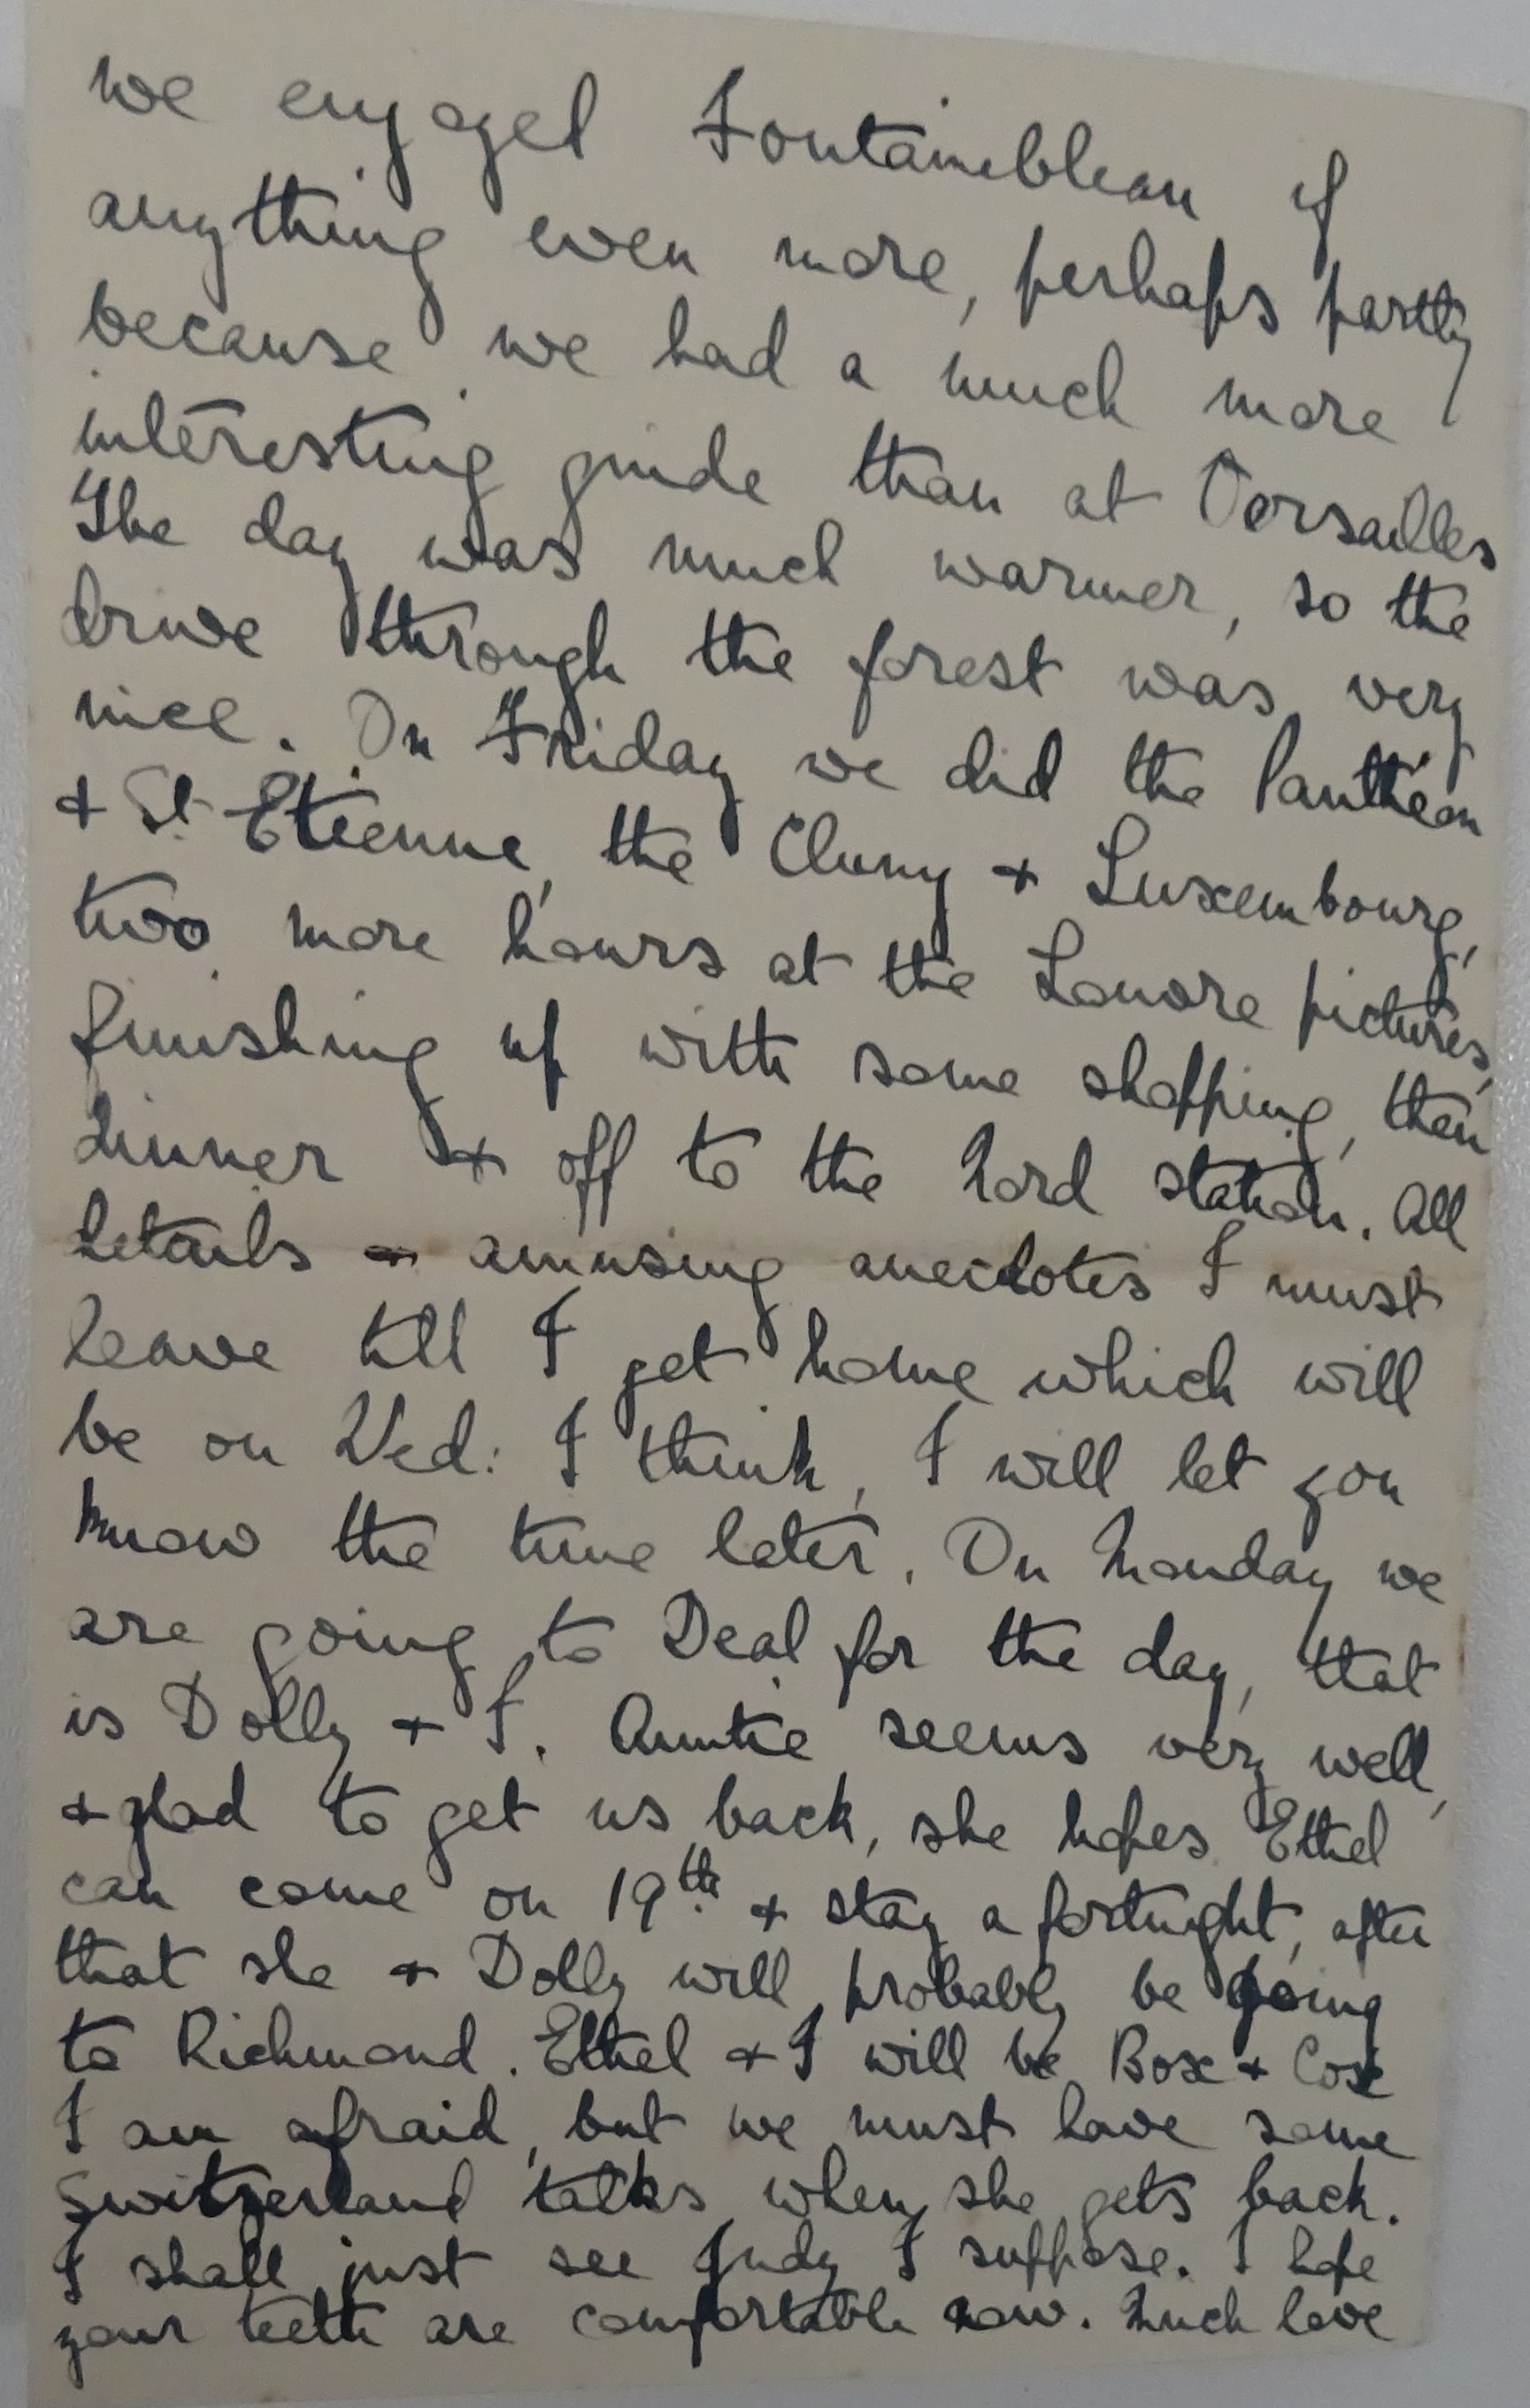 we enjoyed Fontainebleau if
anything even more, perhaps partly
because we had a much more
interesting guide than at Versailles
The day was much warmer, so the
drive through the forest was very
nice. On Friday we did the Panthéon
& St Etienne, the Cluny & Luxembourg,
two more hours at the Louvre pictures,
finishing up with some shopping, then
dinner & off to the Nord station. All
details & amusing anecdotes I must
leave till I get home which will
be on Wed: I think, I will let you
know the time later. On Monday we
are going to Deal for the day, that
is Dolly & I. Auntie seems very well,
& glad to get us back, she hopes Ethel
can come on 19th & stay a fortnight, after
that she & Dolly will probably be going
to Richmond. Ethel & I will be Box & Cox
I am afraid, but we must have some
Switzerland talks when she gets back.
I shall just see Judy I suppose. I hope
your teeth are comfortable now. Much love